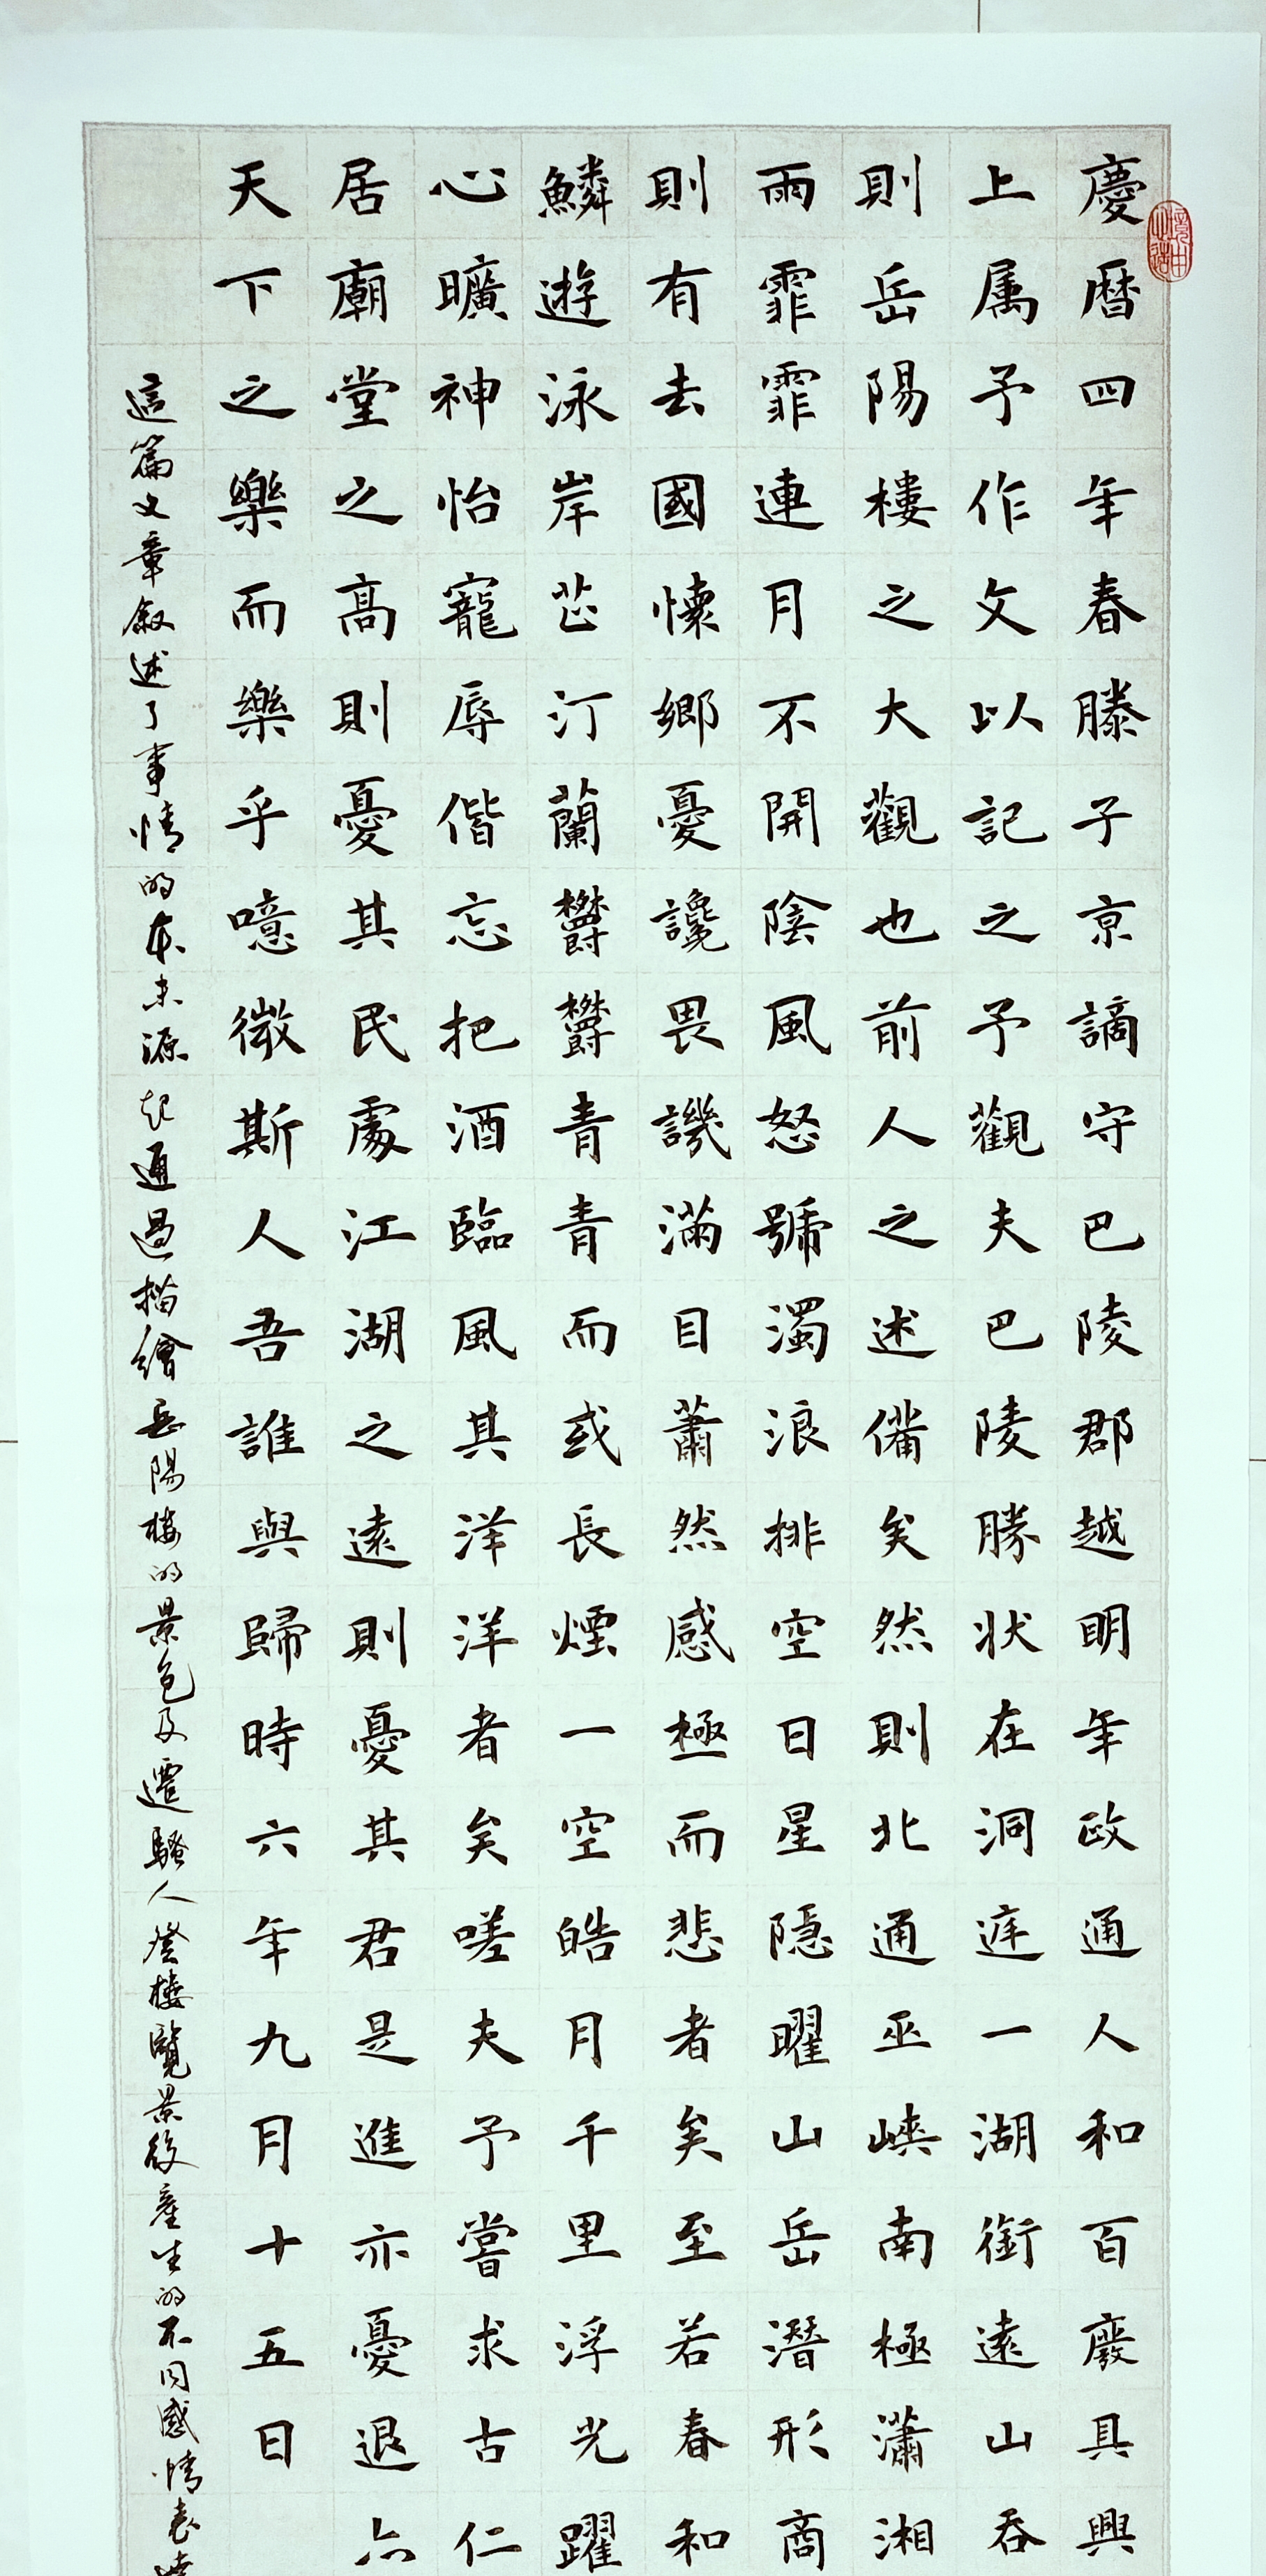 慶曆四年春滕子京謫守巴陵郡越明年政通人和百廢具興
上属予作文以記之予觀夫巴陵勝状在洞庭一湖銜遠山吞
則岳陽樓之大觀也前人之述備矣然則北通巫峽南極瀟湘
雨霏霏連月不開陰風怒號濁浪排空日星隱曜山岳潛形商
則有去國懷鄉憂讒畏譏滿目蕭然感極而悲者矣至若春和
鱗遊泳岸芷汀蘭欝欝青青而或長煙一空皓月千里浮光躍
心曠神怡寵辱偕忘把酒臨風其洋洋者矣嗟夫予嘗求古仁
居廟堂之高則憂其民處江湖之遠則憂其君是進亦憂退亦
天下之樂而樂乎噫微斯人吾誰與歸時六年九月十五日
這篇文章叙述了事情的本末源起通過描繪岳陽樓的景色及遷騷人登樓覽景後產生的不同感情表達